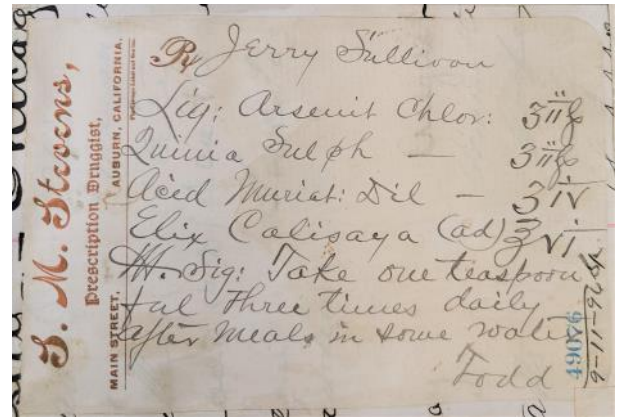 S. M. Stevens,
Prescription Druggist,
MAIN STREET, AUBURN, CALIFORNIA.
Rx Jerry Sullivan
Liq: Arsenit Chlor: ʒiiß
Quinia Sulph — ʒiiß
Acid Muriat: Dil — ʒiv
Elix Calisaya (ad) ℥vi
M. Sig: Take one teaspoon
ful three times daily
after meals in some water
Todd
49076